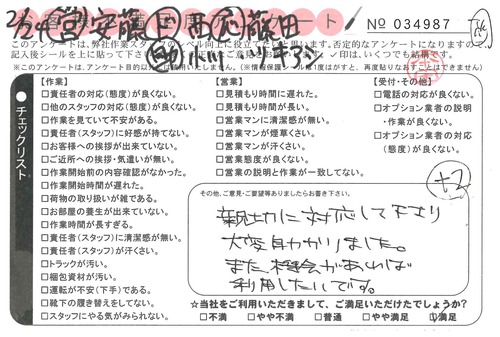 2/24 営 安藤 上 西 応 篠田
アンケート
No 034987
このアンケートは、弊社作業スタッフのレベル向上に役立てたいと思います。否定的なアンケートになりますので
記入後シールを上に貼って下さ
※このアンケートは、作業アンケート目的以
【作業】
□責任者の対応(態度)が良くない。
□他のスタッフの対応(態度)が良くない。
□作業を見ていて不安がある。
□責任者(スタッフ)に好感が持てない。
□お客様への挨拶が出来ていない。
□ご近所への挨拶・気遣いが無い。
□作業開始前の内容確認がなかった。
□作業開始時間が遅れた。
□荷物の取り扱いが雑である。
□お部屋の養生が出来ていない。
□作業時間が長すぎる。
□責任者(スタッフ)に清潔感が無い。
□責任者(スタッフ)が汗くさい。
□トラックが汚い。
□梱包資材が汚い。
□運転が不安(下手)である。
□靴下の履き替えをしてない。
□スタッフにやる気がみられない。
チェックリスト
【営業】
□見積もり時間に遅れた。
□見積もり時間が長い。
□営業マンに清潔感が無い。
□営業マンが煙草くさい。
□営業マンが汗くさい。
□営業態度が良くない。
□営業の説明と作業が一致してない。
【受付・その他】
□電話の対応が良くない。
□オプション業者の説明
・作業が良くない。
□オプション業者の対応
(態度)が良くない。
+2
その他、ご意見・ご要望等ありましたらお書き下さい。
親切に対応して下さり
大変助かりました。
また機会があれば
利用したいです。
☆当社をご利用いただきまして、ご満足いただけたでしょうか?
□不満 □やや不満 □普通 □やや満足 □満足